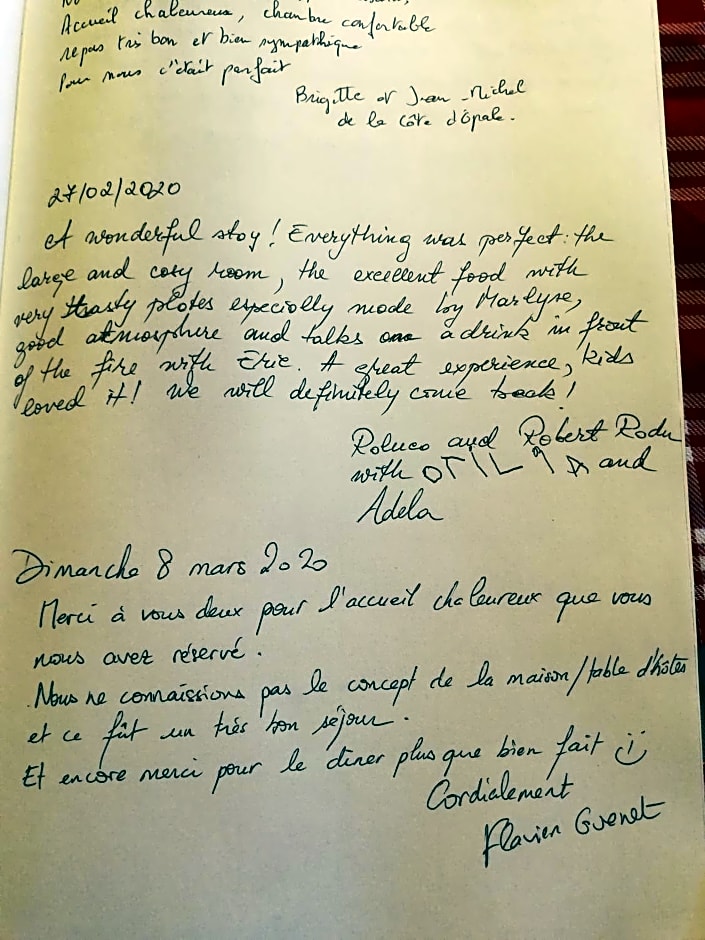 Accueil chaleureux, chambre confortable
repas très bon et bien sympathique
Pour nous c'était parfait
Brigitte et Jean-Michel
de la côte d'Opale.
27/02/2020
A wonderful stay! Everything was perfect: the
large and cosy room, the excellent food with
very tasty plates especially made by Marlyse,
good atmosphere and talks a drink in front
of the fire with Eric. A great experience, kids
loved it! We will definitely come back!
Raluca and Robert Radu
with OTILIA and
Adela
Dimanche 8 mars 2020
Merci à vous deux pour l'accueil chaleureux que vous
nous avez réservé.
Nous ne connaissions pas le concept de la maison/table d'hôtes
et ce fût un très bon séjour.
Et encore merci pour le dîner plus que bien fait
Cordialement
Flavien Guenet